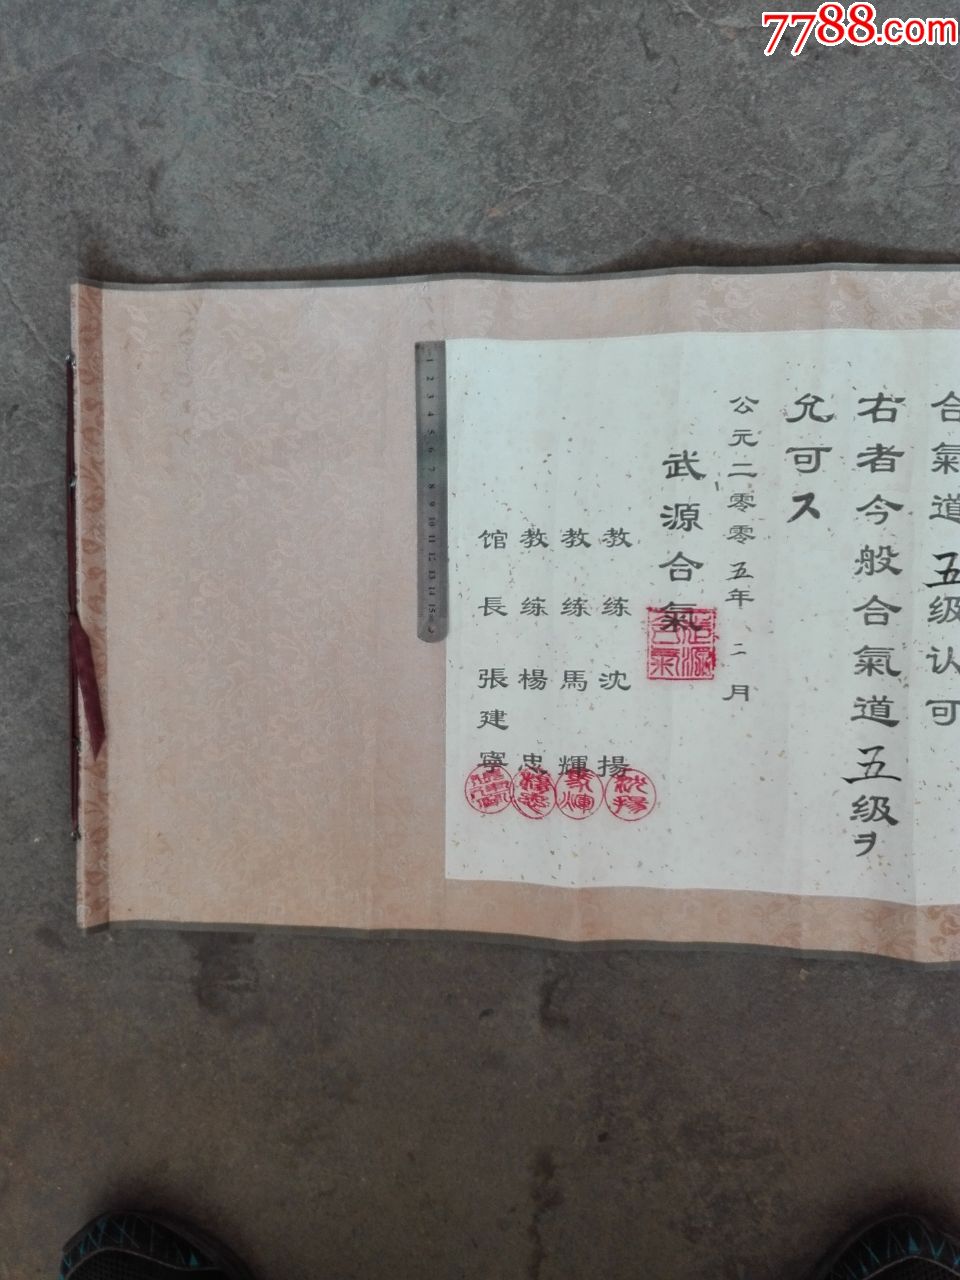 7788.com
合氣道五级认可
右者今般合氣道五级ヲ
允可ス
公元二零零五年二月
武源合氣
武源合氣
教练 沈揚
沈揚
教练 馬輝
馬輝
教练 楊忠
楊忠
馆長 張建寧
張建寧
1 2 3 4 5 6 7 8 9 10 11 12 13 14 15